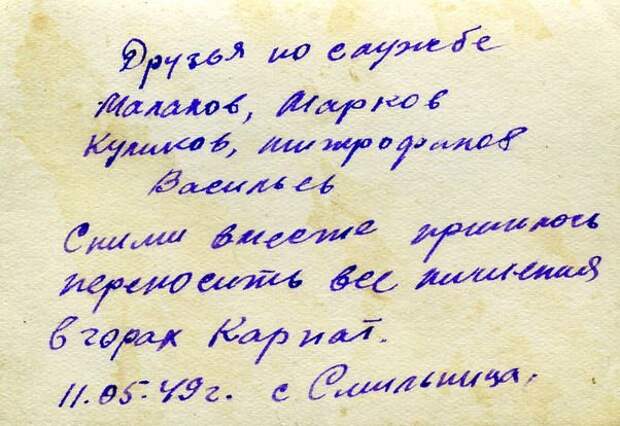 Друзья по службе
Малахов, Марков
Куликов, Митрофанов
Васильев
Сними вместе пришлось
переносить все лишения
в горах Карпат.
11.05.49г. с Смильница.